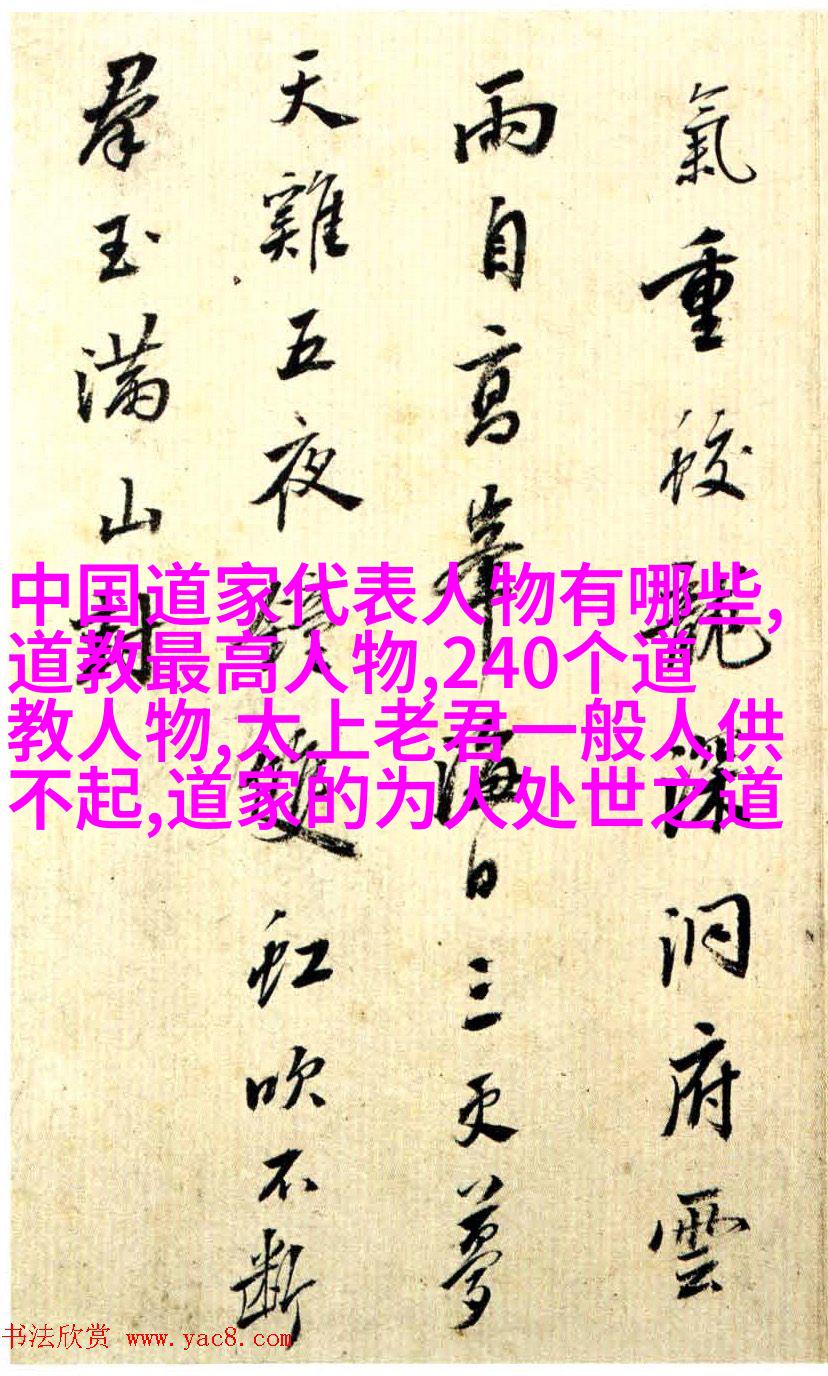 氣重蛟龍深洞府雲
雨自高峯海日三更夢
天雞五夜鐘雙虹吹不斷
羣玉滿山封
中国道家代表人物有哪些,
道教最高人物,240个道
教人物,太上老君一般人供
不起,道家的为人处世之道
书法欣赏 www.yac8.com